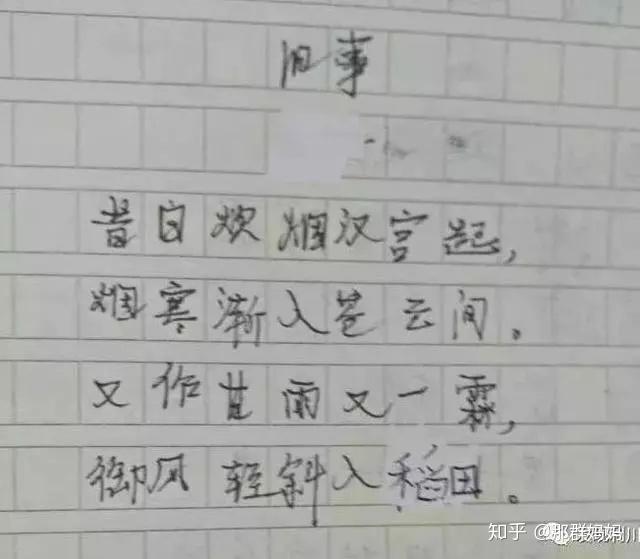 旧事
昔日炊烟汉宫起，
烟寒渐入苍云间。
又作甘雨又一霖，
御风轻斜入稻田。
知乎 @那群妈妈